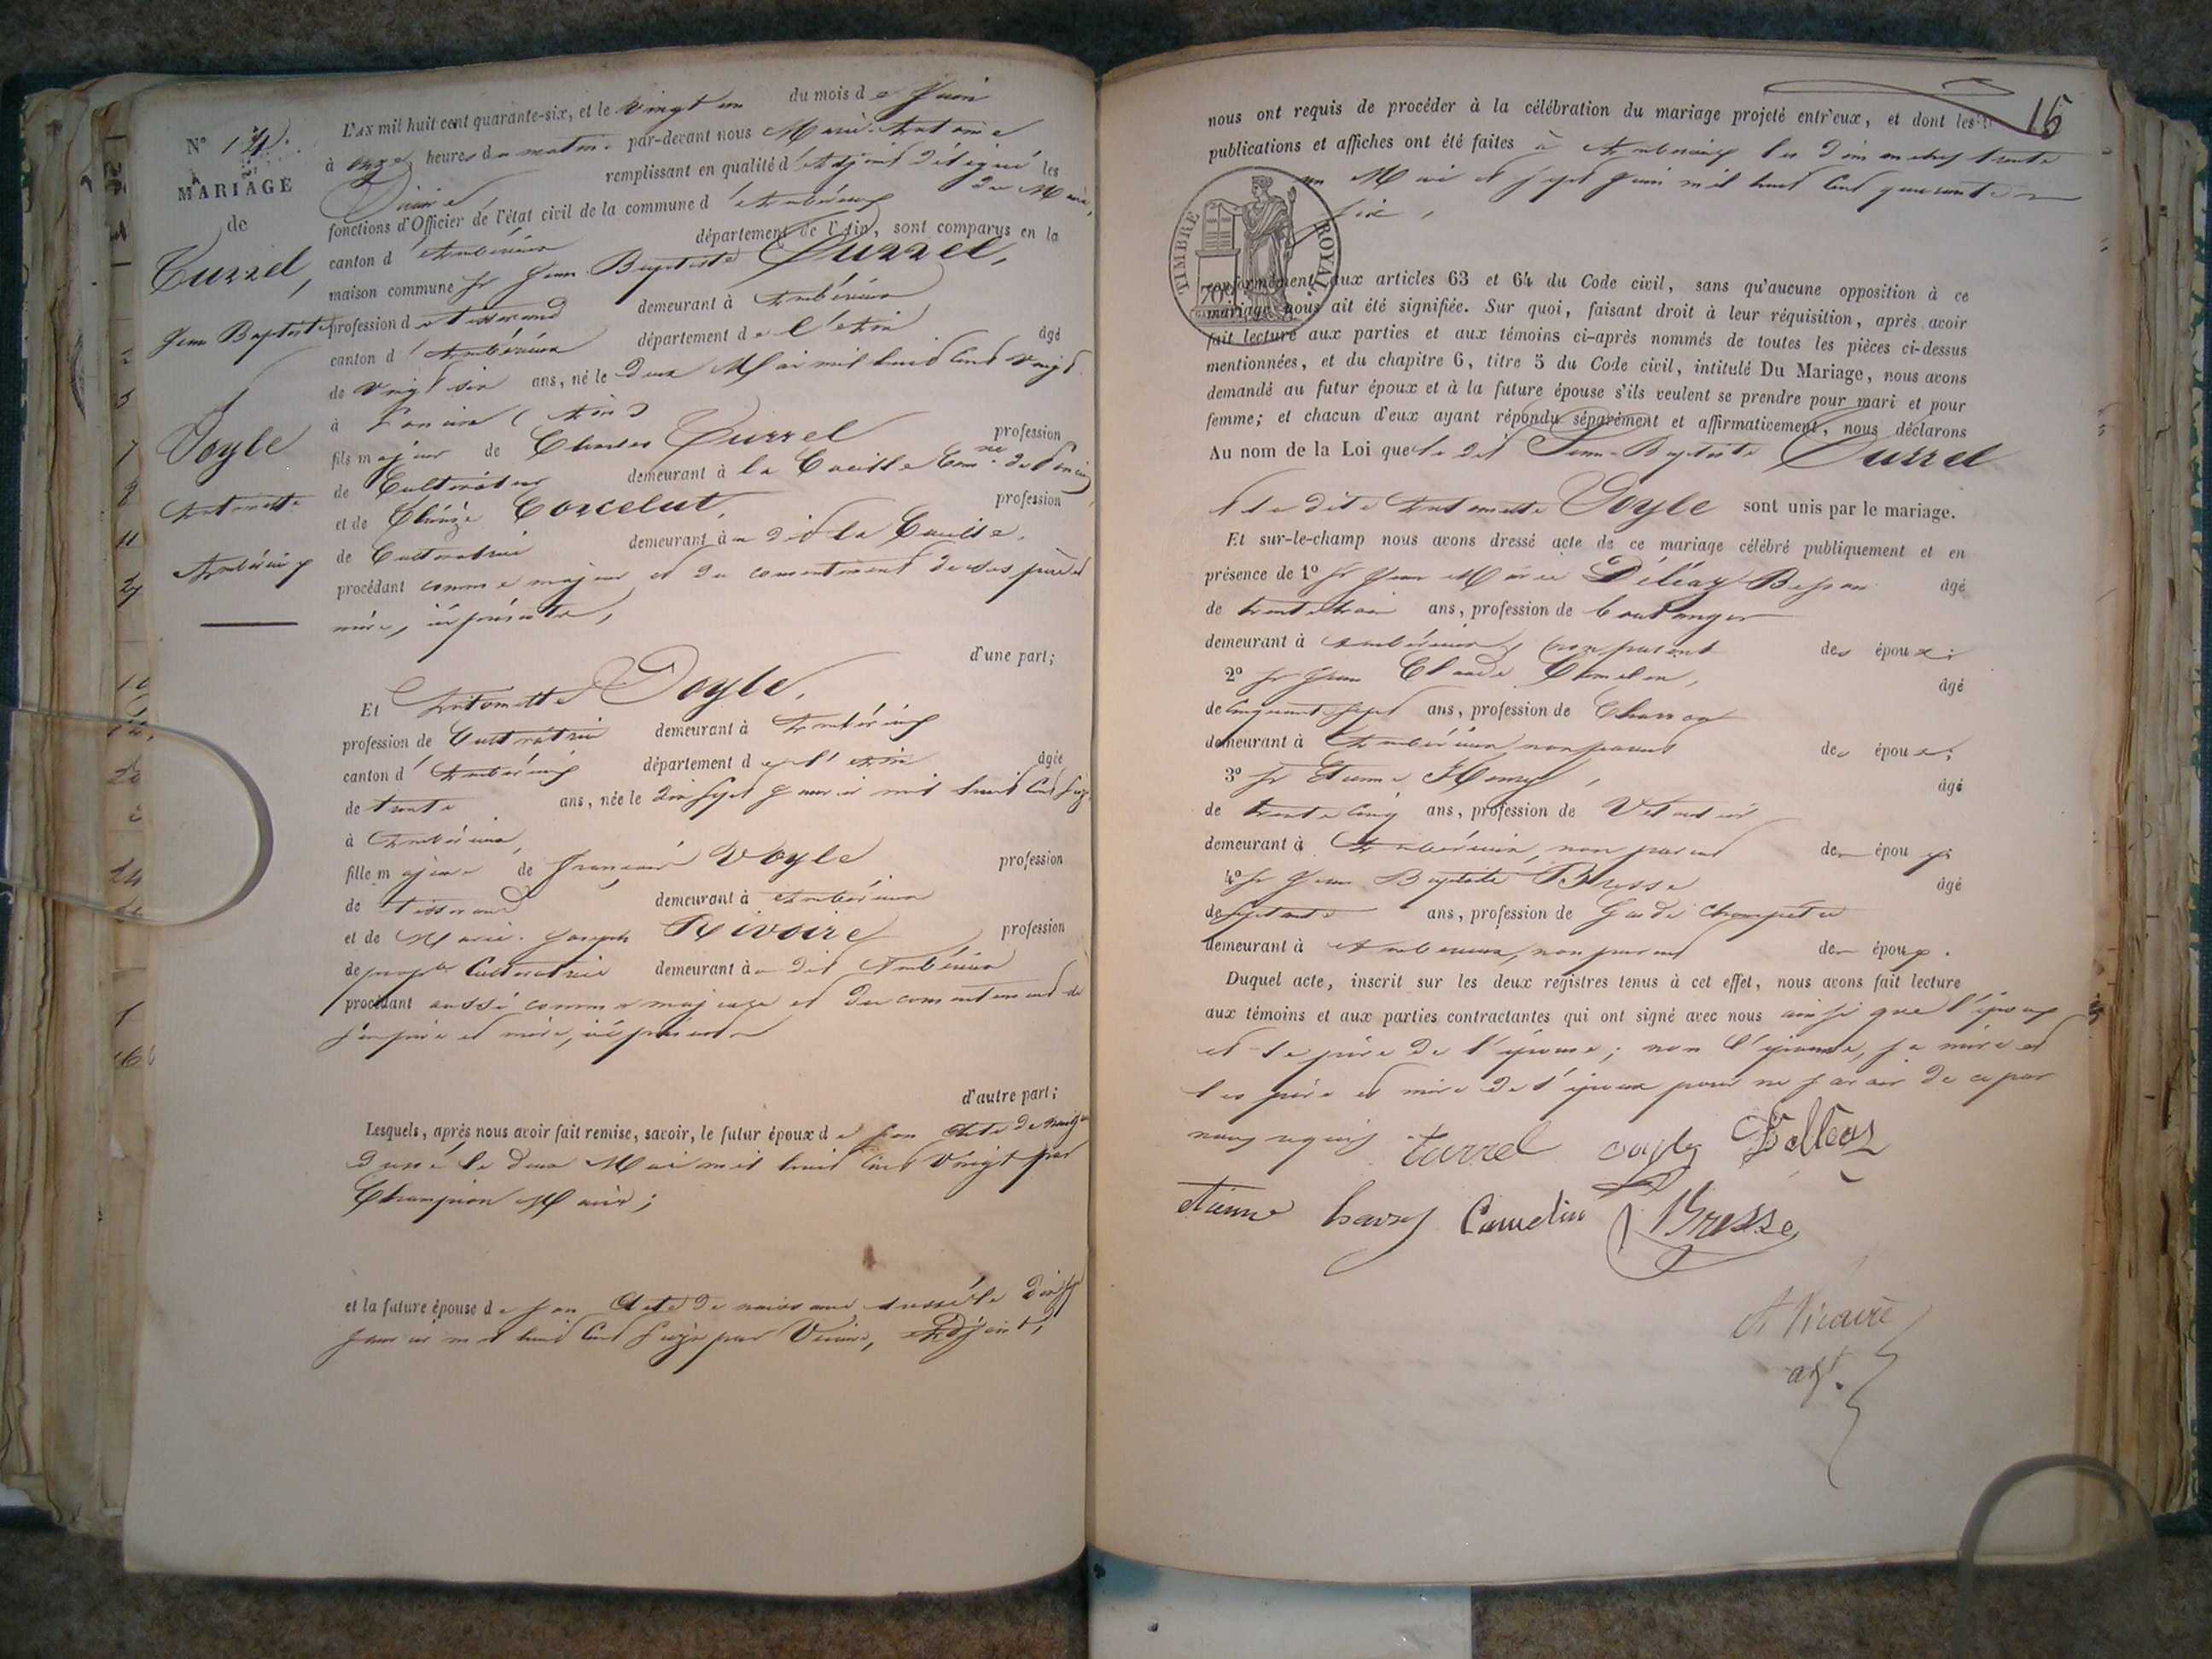 N° 14.
MARIAGE
de
Turrel,
Jean Baptiste
Joyle
Antoinette
Ambérieux
L'AN mil huit cent quarante-six, et le vingt un du mois de Juin
à onze heures du matin. par-devant nous Marie-Antoine
remplissant en qualité d'Adjoint délégué les
du Maire,
fonctions d'Officier de l'état civil de la commune d'Ambérieux
canton d'Ambérieux département de l'Ain, sont comparus en la
maison commune Sr Jean-Baptiste Turrel,
profession de tisserand demeurant à Ambérieux
canton d'Ambérieux département de l'Ain âgé
de vingt six ans, né le deux Mai mil huit cent vingt
à (Ain)
fils majeur de Charles Turrel profession
de Cultivateur demeurant à la
et de Corcelut, profession
de Cultivatrice demeurant au dit la
procédant comme majeur et du consentement de ses père et
mère, ici présents,
d'une part;
Et Antoinette Joyle,
profession de Cultivatrice demeurant à Ambérieux
canton d'Ambérieux département de l'Ain âgée
de trente ans, née le dix sept Janvier mil huit cent seize
à Ambérieux,
fille majeure de François Joyle profession
de tisserand demeurant à Ambérieux
et de Marie-Joseph Rivoire, profession
de Cultivatrice demeurant au dit Ambérieux
procédant aussi comme majeure et du consentement de
ses père et mère, ici présents
d'autre part;
Lesquels, après nous avoir fait remise, savoir, le futur époux de son acte de
dressé le deux Mai mil huit cent vingt par
Champion Maire;
et la future épouse de son acte de naissance dressé le dix sept
Janvier mil huit cent seize par Adjoint;
16
nous ont requis de procéder à la célébration du mariage projeté entr'eux, et dont les
publications et affiches ont été faites à Ambérieux les dimanches trente
un Mai et sept Juin mil huit cent quarante
six,
TIMBRE ROYAL
70
conformément aux articles 63 et 64 du Code civil, sans qu'aucune opposition à ce
mariage nous ait été signifiée. Sur quoi, faisant droit à leur réquisition, après avoir
fait lecture aux parties et aux témoins ci-après nommés de toutes les pièces ci-dessus
mentionnées, et du chapitre 6, titre 5 du Code civil, intitulé Du Mariage, nous avons
demandé au futur époux et à la future épouse s'ils veulent se prendre pour mari et pour
femme; et chacun d'eux ayant répondu séparément et affirmativement, nous déclarons
Au nom de la Loi que le dit Jean-Baptiste Turrel
et la dite Antoinette Joyle sont unis par le mariage.
Et sur-le-champ nous avons dressé acte de ce mariage célébré publiquement et en
présence de 1° Sr Jean Marie âgé
de trente trois ans, profession de boulanger
demeurant à Ambérieux, non parent des époux;
2° Sr Jean Claude Camelin, âgé
de cinquante sept ans, profession de Charron
demeurant à Ambérieux, non parent des époux;
3° Sr Etienne Henry, âgé
de trente cinq ans, profession de
demeurant à Ambérieux, non parent des époux;
4° Sr Jean Baptiste Bresse âgé
de septante ans, profession de Garde Champêtre
demeurant à Ambérieux, non parent des époux.
Duquel acte, inscrit sur les deux registres tenus à cet effet, nous avons fait lecture
aux témoins et aux parties contractantes qui ont signé avec nous ainsi que l'époux
et le père de l'épouse; non l'épouse, sa mère et
les père et mère de l'époux pour ne savoir de ce par
nous requis Turrel
Etienne Camelin Bresse